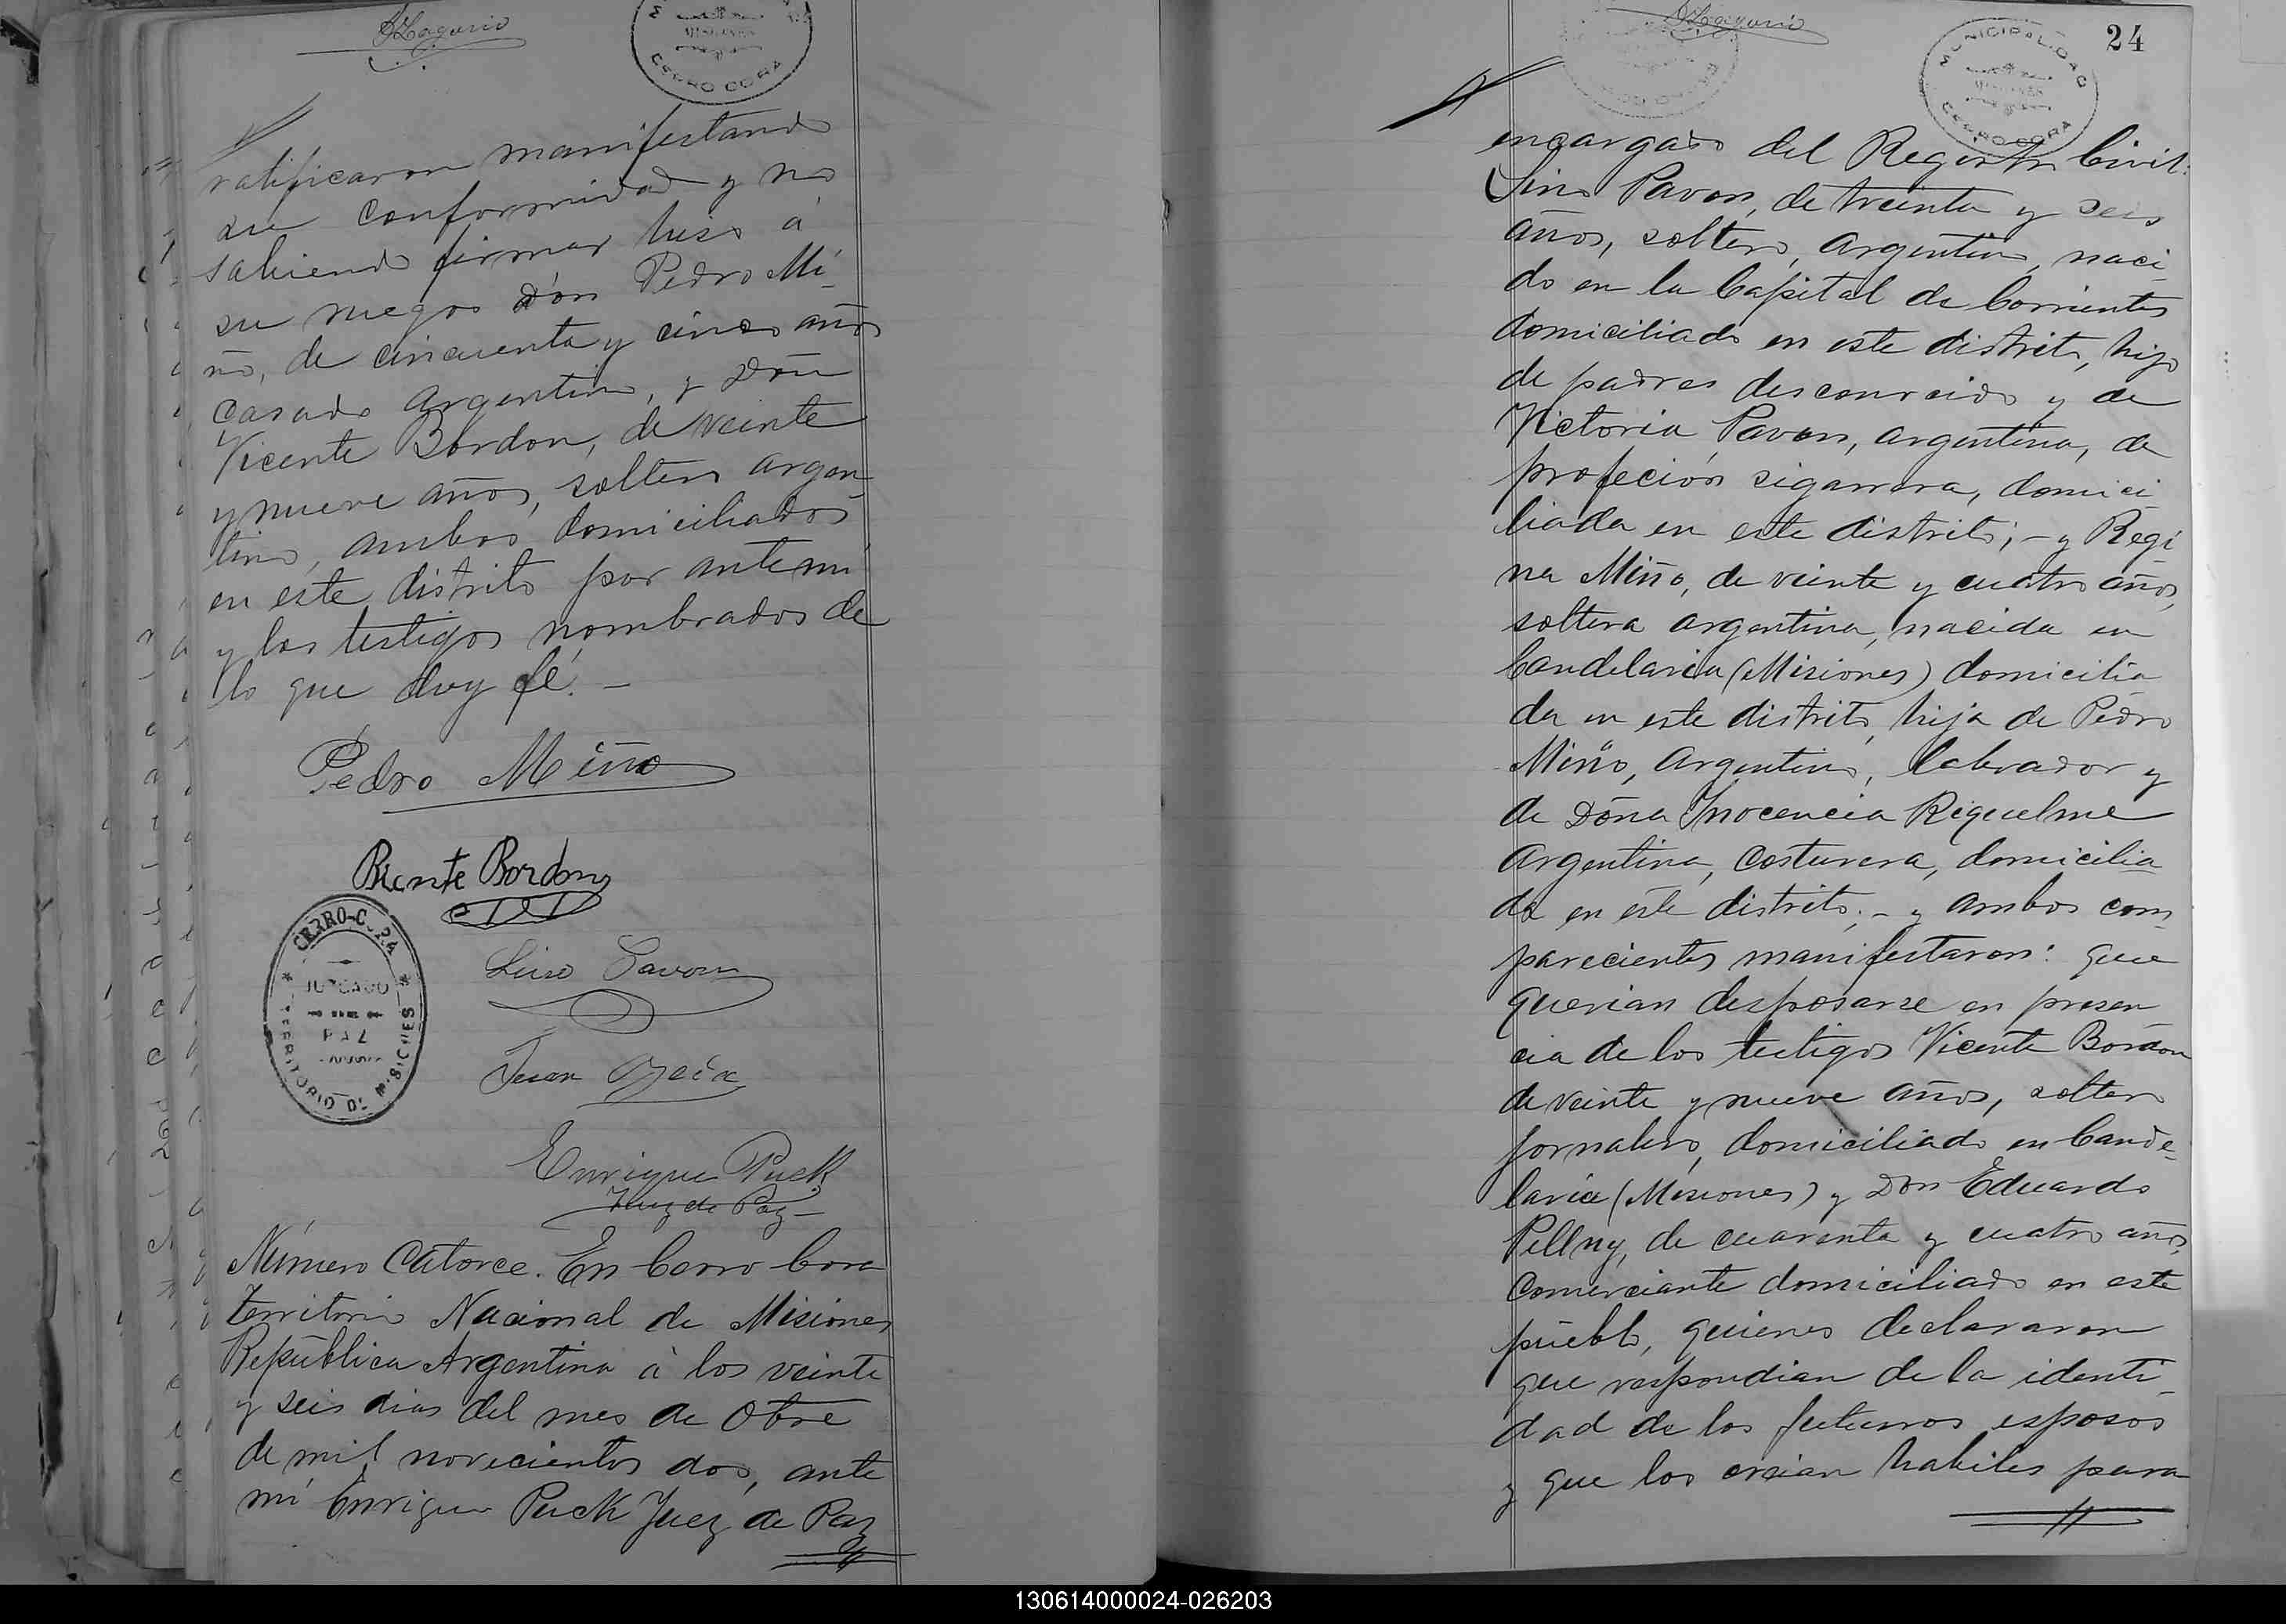 MUNICIPALIDAD
CERRO CORA
ratificaron manifestando
su conformidad y no
sabiendo firmar hiso á
su ruegos dón Pedro Mi-
ño, de cincuenta y cinco años
casado argentino, y Dón
Vicente Bordon, de veinte
y nueve años, soltero argen-
tino, ambos domiciliados
en este distrito por ante mi
y los testigos nombrados de
lo que doy fé. -
Pedro Miño
Bicente Bordon
Lino Pavon
CERRO-CORA
JUZGADO
DE
PAZ
TERRITORIO DE MISIONES
Juan
Enrique Puck
Juez de Paz
Número Catorce. En Cerro Cora
Territorio Nacional de Misiones
República Argentina á los veinte
y seis dias del mes de Obre
de mil novecientos dos, ante
mi Enrique Puck Juez de Paz
24
MUNICIPALIDAD
MISIONES
CERRO CORA
encargado del Registro Civil:
Lino Pavon, de treinta y seis
años, soltero, argentino, naci-
do en la Capital de Corrientes
domiciliado en este distrito, hijo
de padres desconocido y de
Victoria Pavon, argentina, de
profeción sigarrera, domici-
liada en este distrito; - y Regi-
na Miño, de veinte y cuatro años,
soltera argentina, nacida en
Candelaria (Misiones) domicilia
da en este distrito, hija de Pedro
Miño, argentino, labrador y
de Dóna Inocencia Riquelme
argentina, costurera, domicilia
da en este distrito; - y ambos com
parecientes manifestaron: que
querian desposarse en presen
cia de los testigos Vicente Bordon
de veinte y nueve años, soltero
jornalero, domiciliado en Cande-
laria (Misiones) y Don Eduardo
Pellny, de cuarenta y cuatro años,
comerciante domiciliado en este
pueblo, quienes declararon
que respondian de la identi-
dad de los futuros esposos
y que los creian habiles para
130614000024-026203